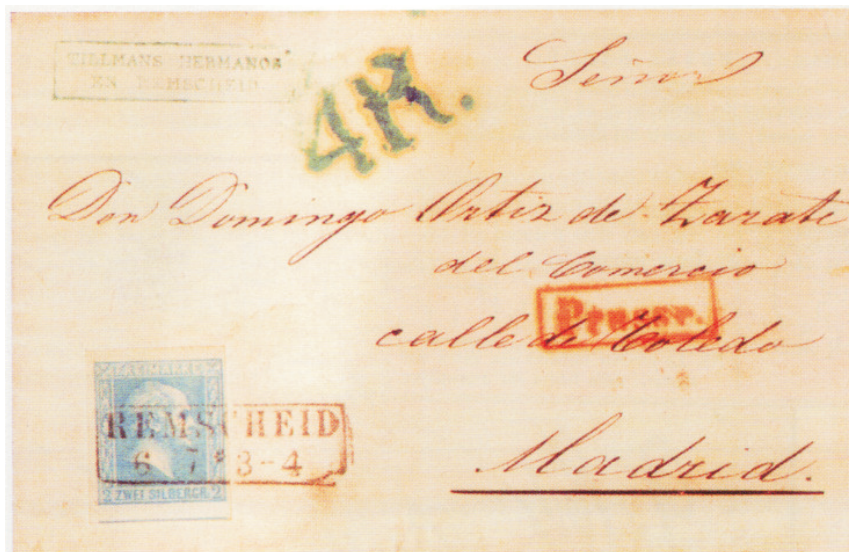 TILLMANS HERMANOS
EN REMSCHEID
4R.
Señor
Don Domingo Ortiz de Zarate
del Comercio
Prusse.
calle de Toledo
FREIMARKE
REMSCHEID
6 7 * 3-4
2 ZWEI SILBERGR. 2
Madrid.